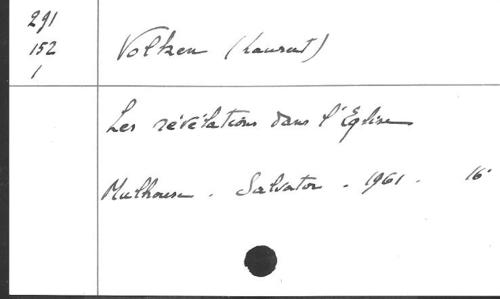 291
152
1
Volken (Laurent)
Les révélations dans l'Eglise
Mulhouse. Salvator. 1961. 16°